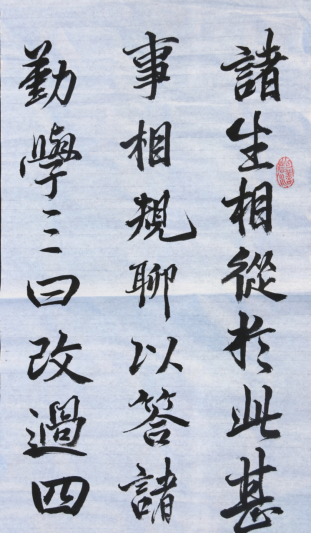 諸生相從於此甚
事相規聊以答諸
勤學三曰改過四